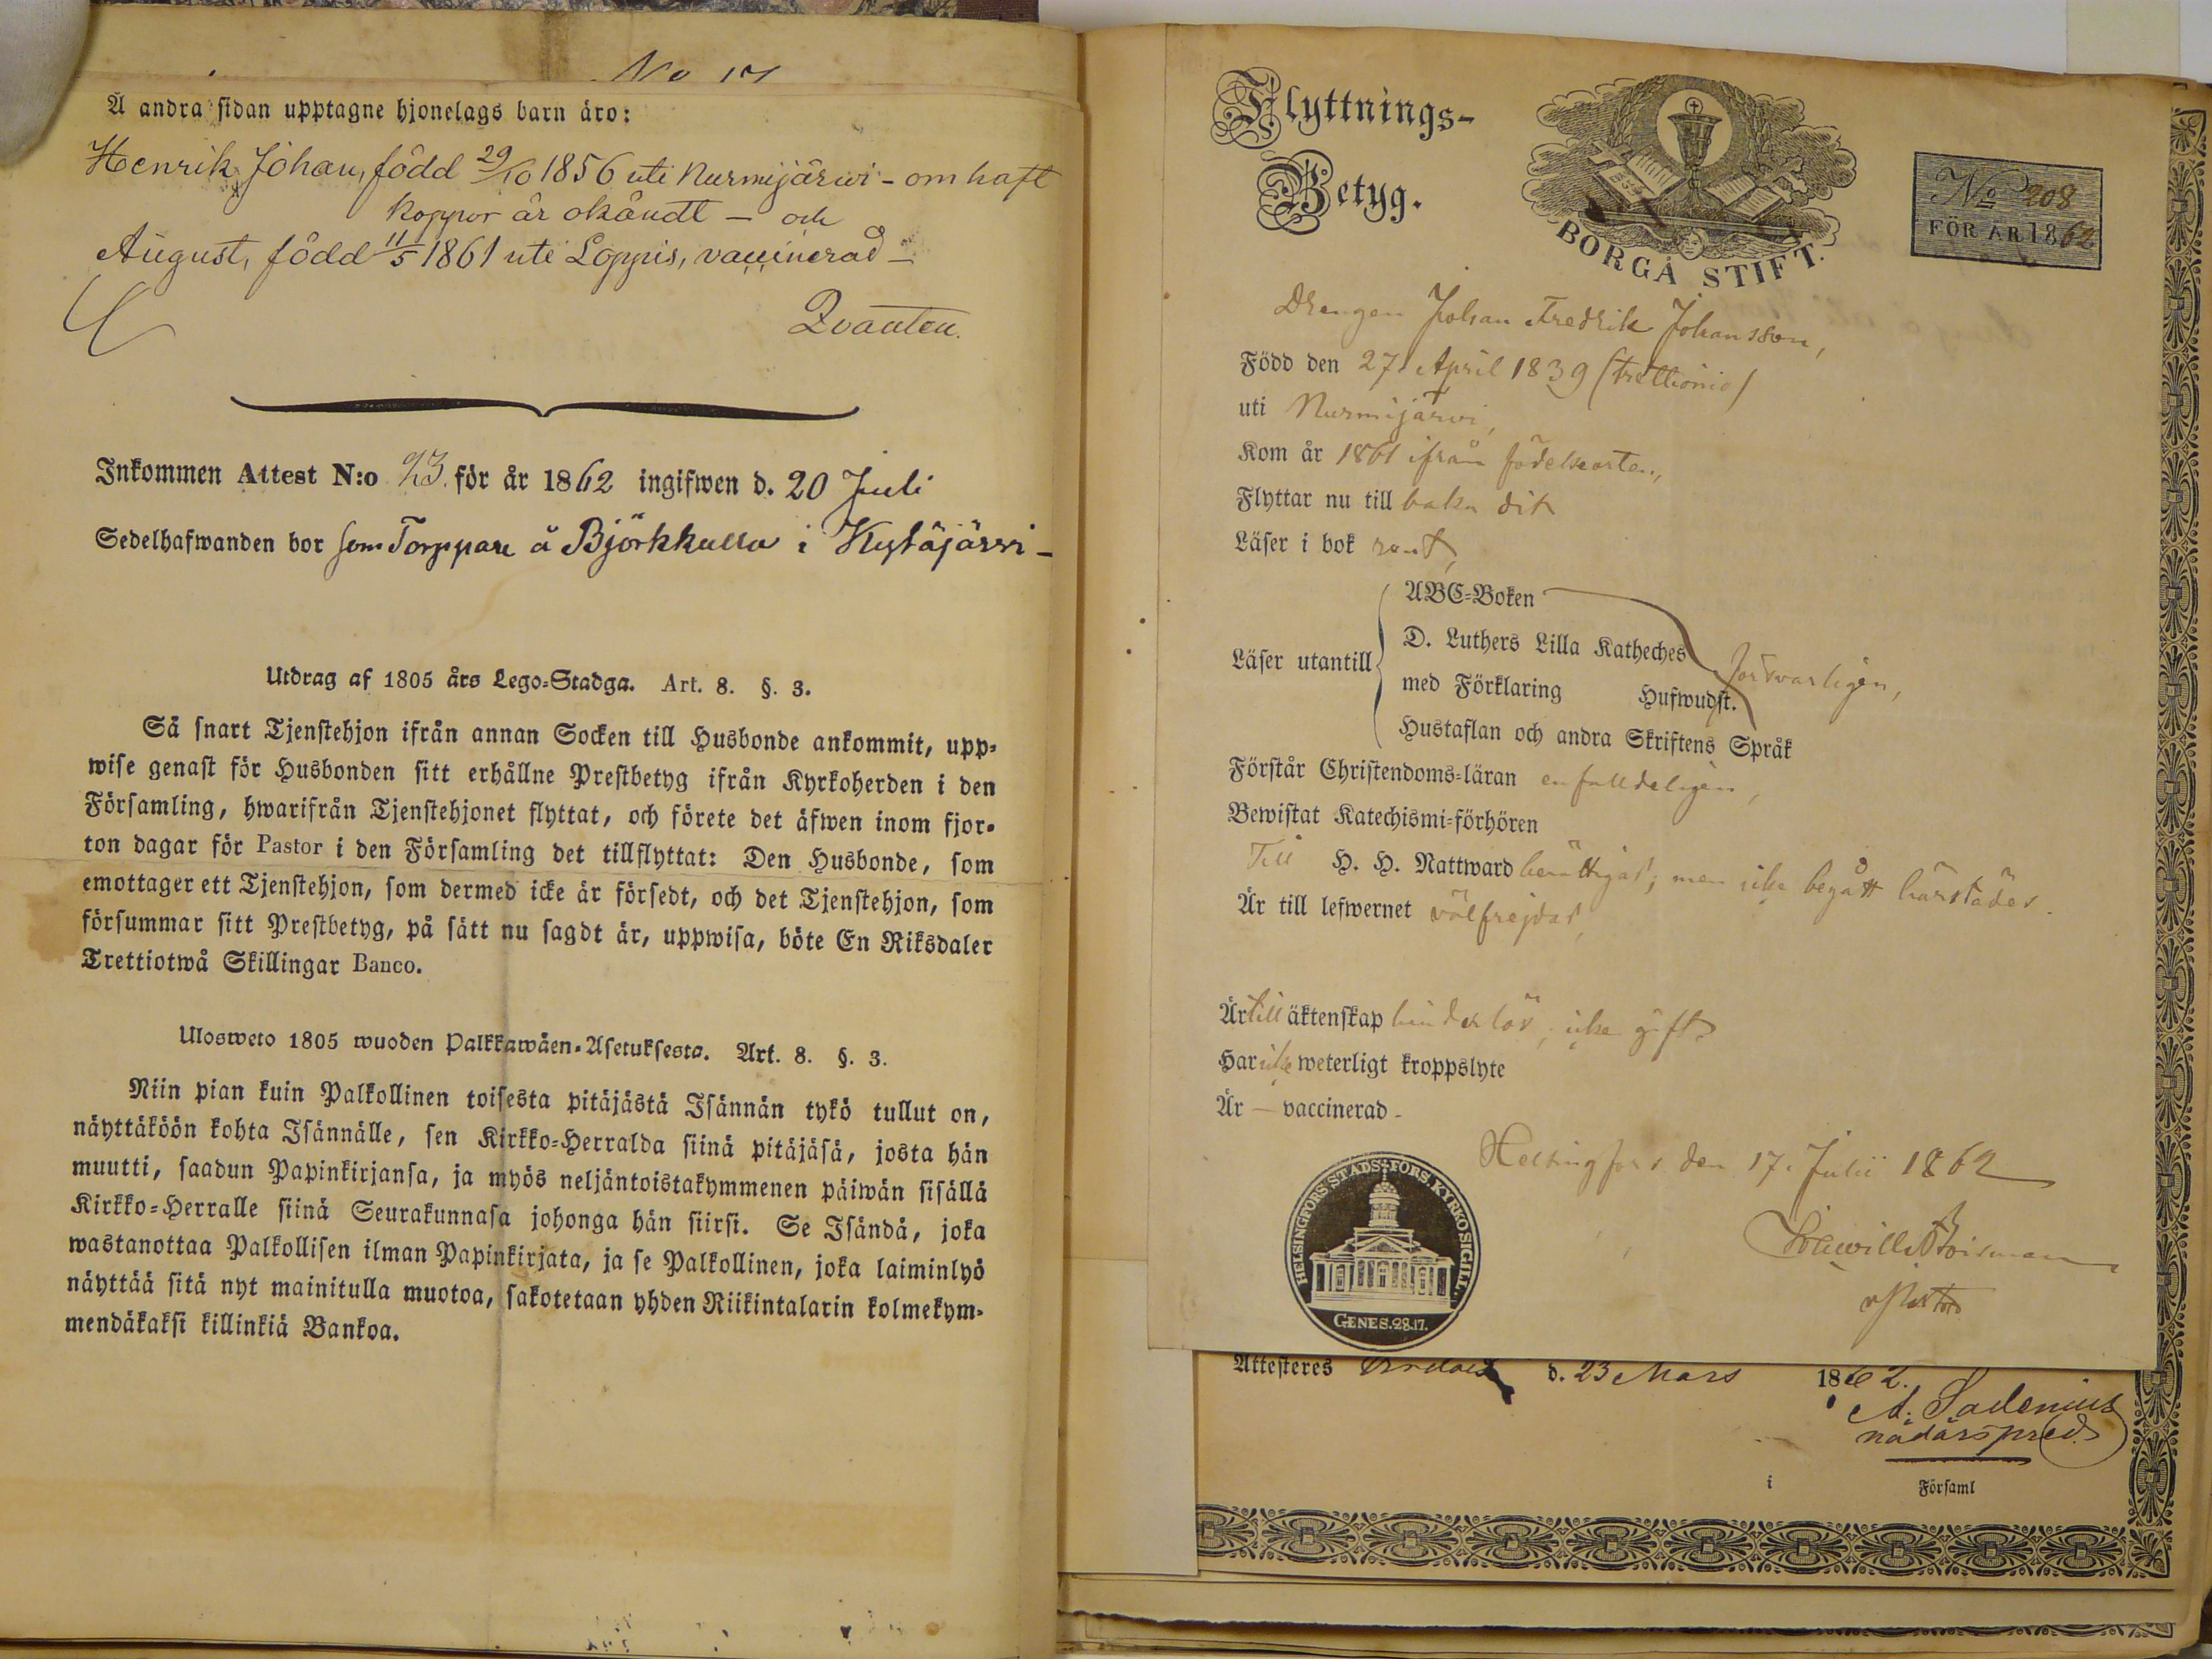 No 17
Å andra sidan upptagne hjonelags barn äro:
Henrik Johan, född 29/10 1856 uti Nurmijärwi - om haft
koppor är okändt - och
August, född 11/5 1861 uti Loppis, vaccinerad -
Qvanten.
Inkommen Attest N:o 23. för år 1862 ingifwen d. 20 Juli
Sedelhafwanden bor som Torppare å Björkkulla i Kytäjärvi -
Utdrag af 1805 års Lego-Stadga. Art. 8. §. 3.
Så snart Tjenstehjon ifrån annan Socken till Husbonde ankommit, upp-
wise genast för Husbonden sitt erhållne Prestbetyg ifrån Kyrkoherden i den
Församling, hwarifrån Tjenstehjonet flyttat, och förete det äfwen inom fjor-
ton dagar för Pastor i den Församling det tillflyttat: Den Husbonde, som
emottager ett Tjenstehjon, som dermed icke är försedt, och det Tjenstehjon, som
försummar sitt Prestbetyg, på sätt nu sagdt är, uppwisa, böte En Riksdaler
Trettiotwå Skillingar Banco.
Ulosweto 1805 wuoden Palkkawäen-Asetuksesta. Art. 8. §. 3.
Niin pian kuin Palkollinen toisesta pitäjästä Isännän tykö tullut on,
näyttäköön kohta Isännälle, sen Kirkko-Herralda siinä pitäjäsä, josta hän
muutti, saadun Papinkirjansa, ja myös neljäntoistakymmenen päiwän sisällä
Kirkko-Herralle siinä Seurakunnasa johonga hän siirsi. Se Isändä, joka
wastanottaa Palkollisen ilman Papinkirjata, ja se Palkollinen, joka laiminlyö
näyttää sitä nyt mainitulla muotoa, sakotetaan yhden Riikintalarin kolmekym-
mendäkaksi killinkiä Bankoa.
Flyttnings-
Betyg.
BORGÅ STIFT.
No 208
FÖR ÅR 1862
Drengen Johan Fredrik Johansson,
Född den 27 April 1839 (trettionio)
uti Nurmijärwi,
Kom år 1861 ifrån födelseorten,
Flyttar nu till baka dit
Läser i bok rent,
ABC-Boken
Läser utantill D. Luthers Lilla Katheches
med Förklaring Hufwudst. försvarligen,
Hustaflan och andra Skriftens Språk
Förstår Christendoms-läran enfalldeligen,
Bewistat Katechismi-förhören
Till H. H. Nattward berättigad; men icke begått härstädes.
Är till lefwernet välfrejdad,
Är till äktenskap hinderlös, icke gift
Har icke weterligt kroppslyte
Är - vaccinerad -
Helsingfors den 17. Julii 1862
HELSINGFORS STADS FÖRS. KYRKOSIGILL.
GENES. 28.17.
Attesteres d. 23 Mars 1862.
nådårspred.
i Församl